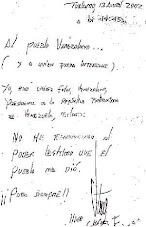 Turiamo, 13 Abril 2002
a las 14:45 hs
Al pueblo Venezolano...
( y a quien pueda interesar ).
Yo, Hugo Chávez Frías, Venezolano,
Presidente de la República Bolivariana
de Venezuela, declaro:
No he renunciado al
poder legítimo que el
pueblo me dió.
¡¡ Para siempre !!
Hugo